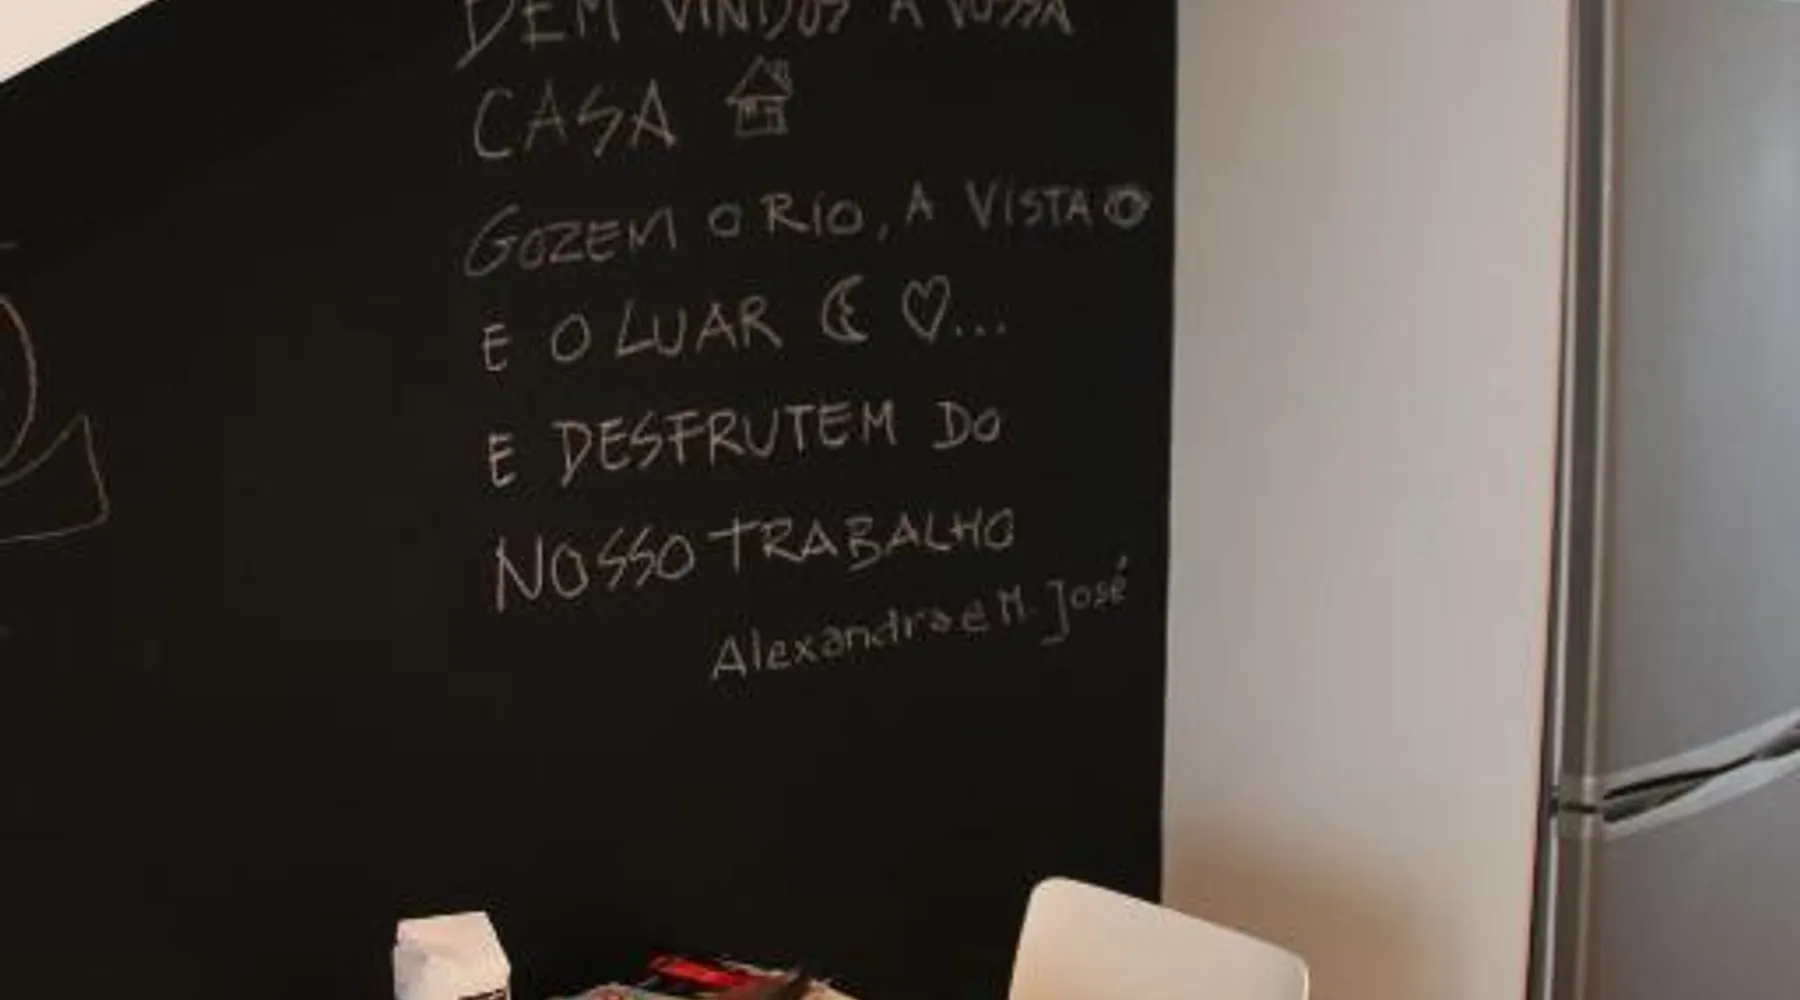 BEM VINDOS A VOSSA
CASA
GOZEM O RIO, A VISTA
E O LUAR ...
E DESFRUTEM DO
NOSSO TRABALHO
Alexandra e M. José